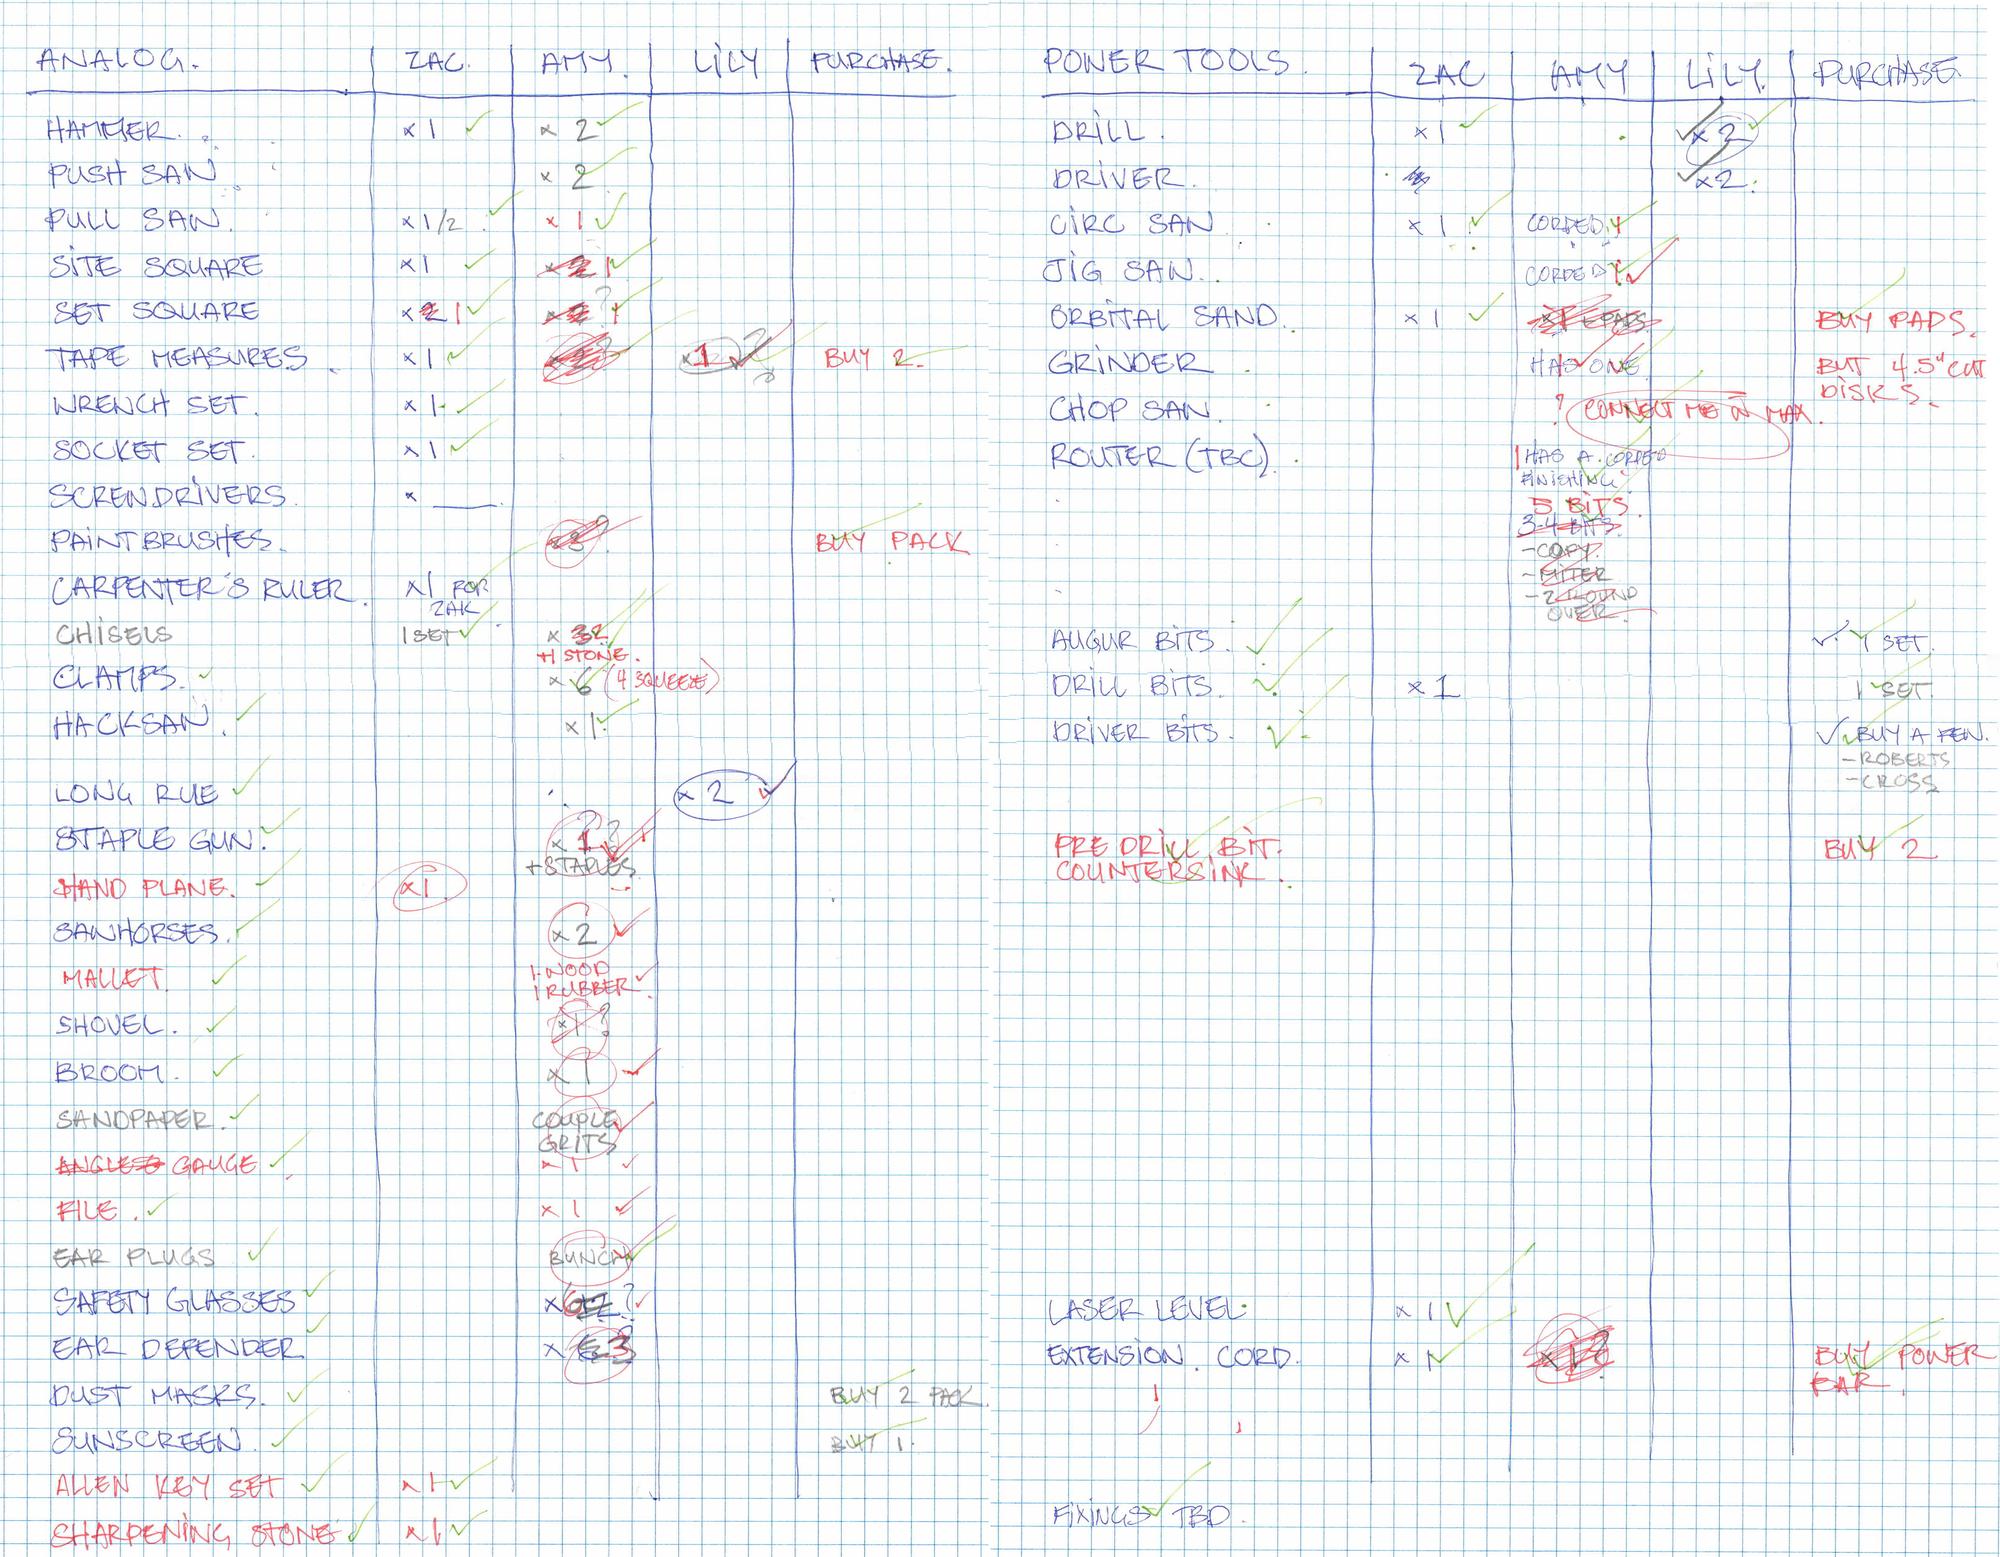 ANALOG. ZAC. AMY. LiLY PURCHASE.
HAMMER. x 1 x 2
PUSH SAW x 2
PULL SAW. x 1/2 x 1
SiTE SQUARE x 1 1
SET SQUARE x 1 ? 1
TAPE MEASURES. x 1 x 1 ? BUY 2.
WRENCH SET. x 1
SOCKET SET. x 1
SCREWDRIVERS. x
PAINTBRUSHES. x3 ? BUY PACK
CARPENTER'S RULER. x1 FOR
ZAK
CHiSELS 1 SET x 2
+1 STONE.
CLAMPS. x 6 (4 SQUEEZE)
HACKSAW. x 1
LONG RULE x 2
STAPLE GUN. x 1 ?
+STAPLES
HAND PLANE. x1.
SAWHORSES. x 2
MALLET. 1 WOOD
1 RUBBER.
SHOVEL. x 1 ?
BROOM. x 1
SANDPAPER. COUPLE
GRITS
GAUGE x 1
FILE. x 1
EAR PLUGS BUNCH
SAFETY GLASSES x 6 ?
EAR DEFENDER x 3
DUST MASKS. BUY 2 PACK.
SUNSCREEN. BUY 1.
ALLEN KEY SET x 1
SHARPENING STONE x 1
POWER TOOLS. ZAC AMY LiLY. PURCHASE
DRiLL. x 1 x 2
DRiVER. x2.
CiRC SAW x 1 CORDED. 1
JiG SAW. CORDED 1
ORBiTAL SAND. x 1 x1 + PADS BUY PADS.
GRiNDER HAS ONE BUT 4.5" CUT
DiSKS.
CHOP SAW. ? CONNECT ME W MAX.
ROUTER (TBC). 1 HAS A CORDED
FiNiSHiNG
5 BiTS.
3-4 BiTS.
- COPY.
- MiTER
- 2 ROUND
OVER.
AUGUR BiTS. 1 SET.
DRiLL BiTS. x 1 1 SET.
DRiVER BiTS. BUY A FEW.
- ROBERTS
- CROSS
PRE DRiLL BiT. BUY 2
COUNTERSiNK.
LASER LEVEL x 1
EXTENSiON CORD. x 1 BUY POWER
BAR.
FiXiNGS TBD.